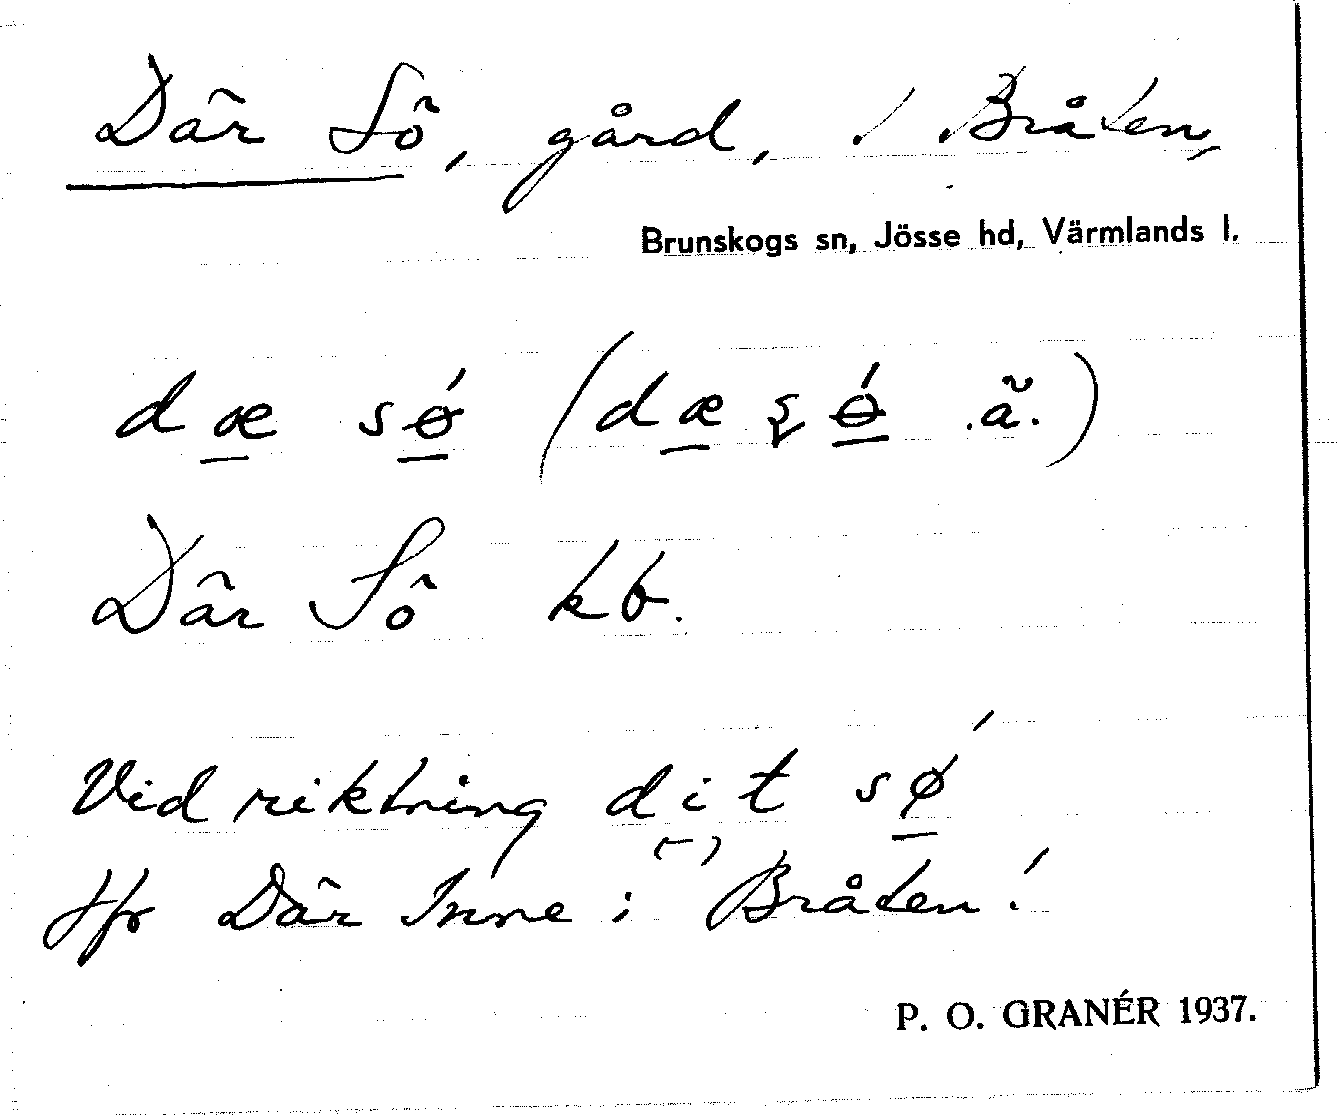 Där Sö, gård, i Bråten,
Brunskogs sn, Jösse hd, Värmlands l.
dæ sǿ (dæ ʂǿ ä.)
Där Sö kb.
Vid riktning dit sǿ
Jfr Där Inne i Bråten!
P. O. GRANÉR 1937.